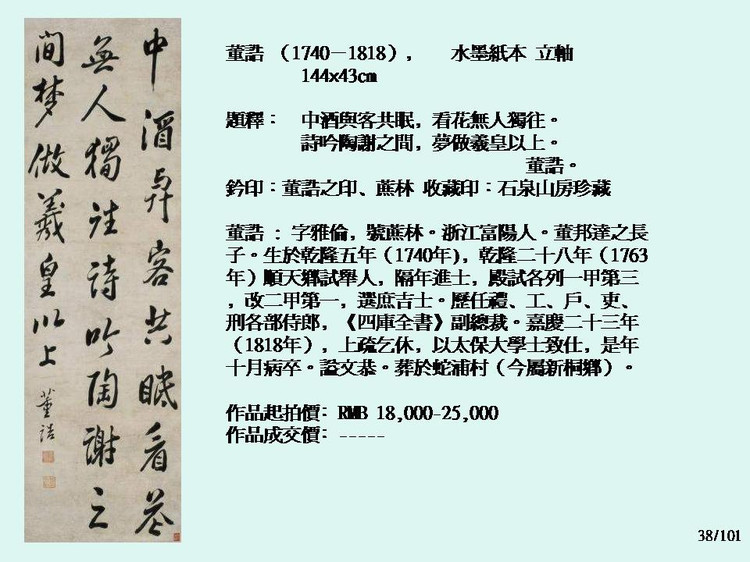 中酒與客共眠看花
無人獨往詩吟陶謝之
間梦做羲皇以上
董誥
董誥 （1740－1818）， 水墨紙本 立軸
144x43cm
題釋： 中酒與客共眠，看花無人獨往。
詩吟陶謝之間，夢做羲皇以上。
董誥。
鈐印：董誥之印、蔗林 收藏印：石泉山房珍藏
董誥 : 字雅倫，號蔗林。浙江富陽人。董邦達之長
子。生於乾隆五年（1740年)，乾隆二十八年（1763
年）順天鄉試舉人，隔年進士，殿試各列一甲第三
，改二甲第一，選庶吉士。歷任禮、工、戶、吏、
刑各部侍郎，《四庫全書》副總裁。嘉慶二十三年
（1818年），上疏乞休，以太保大學士致仕，是年
十月病卒。謚文恭。葬於蛇浦村（今屬新桐鄉）。
作品起拍價: RMB 18,000-25,000
作品成交價: -----
38/101